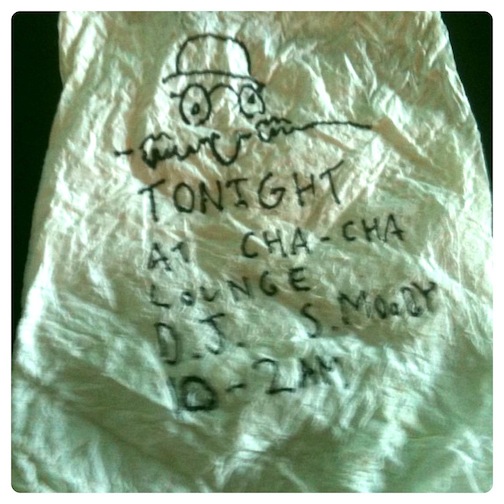 TONIGHT
AT CHA-CHA
LOUNGE
D.J. S. MOODY
10-2AM